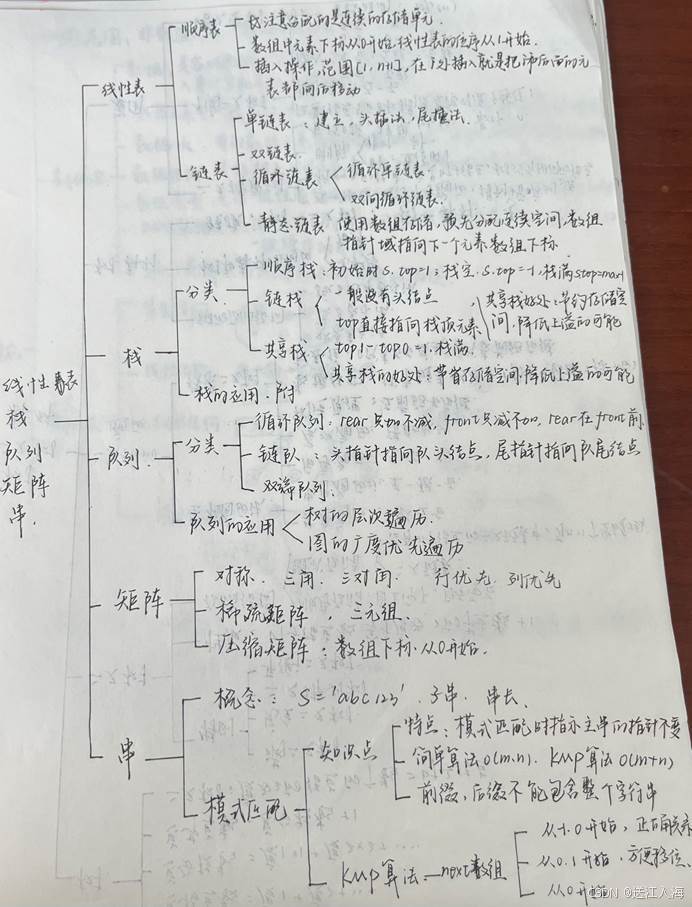 线性表
栈
队列
矩阵
串.
线性表
顺序表
注意分配的是连续的存储单元.
数组中元素下标从0开始,线性表的位序从1开始.
插入操作,范围[1, n+1],在i处插入就是把i后面的元
素都向后移动
链表
单链表:建立,头插法,尾插法.
双链表.
循环链表
循环单链表
双向循环链表.
静态链表 使用数组存储,预先分配连续空间,数组
指针域指向下一个元素数组下标.
栈
分类
顺序栈:初始时S.top=1;栈空.S.top=-1.栈满
链栈
一般没有头结点
top直接指向栈顶元素
共享栈好处:节约存储空
间,降低上溢的可能
共享栈
top1-top0=1.栈满.
共享栈的好处:节省存储空间.降低上溢的可能
栈的应用.附
队列.
分类
循环队列:rear只加不减,front只减不加,rear在front前.
链队:头指针指向队头结点,尾指针指向队尾结点
双端队列.
队列的应用
树的层次遍历.
图的广度优先遍历
矩阵
对称. 三角. 三对角. 行优先.列优先
稀疏矩阵,三元组.
压缩矩阵:数组下标.从0开始.
串
概念:S='abc123'.子串.串长.
模式匹配
知识点
特点:模式匹配时指示主串的指针不变
简单算法O(m·n). KMP算法O(m+n)
前缀,后缀不能包含整个字符串
KMP算法—next数组
从-1.0开始,
从0.1开始.方便移位.
从0开始
CSDN @送江入海